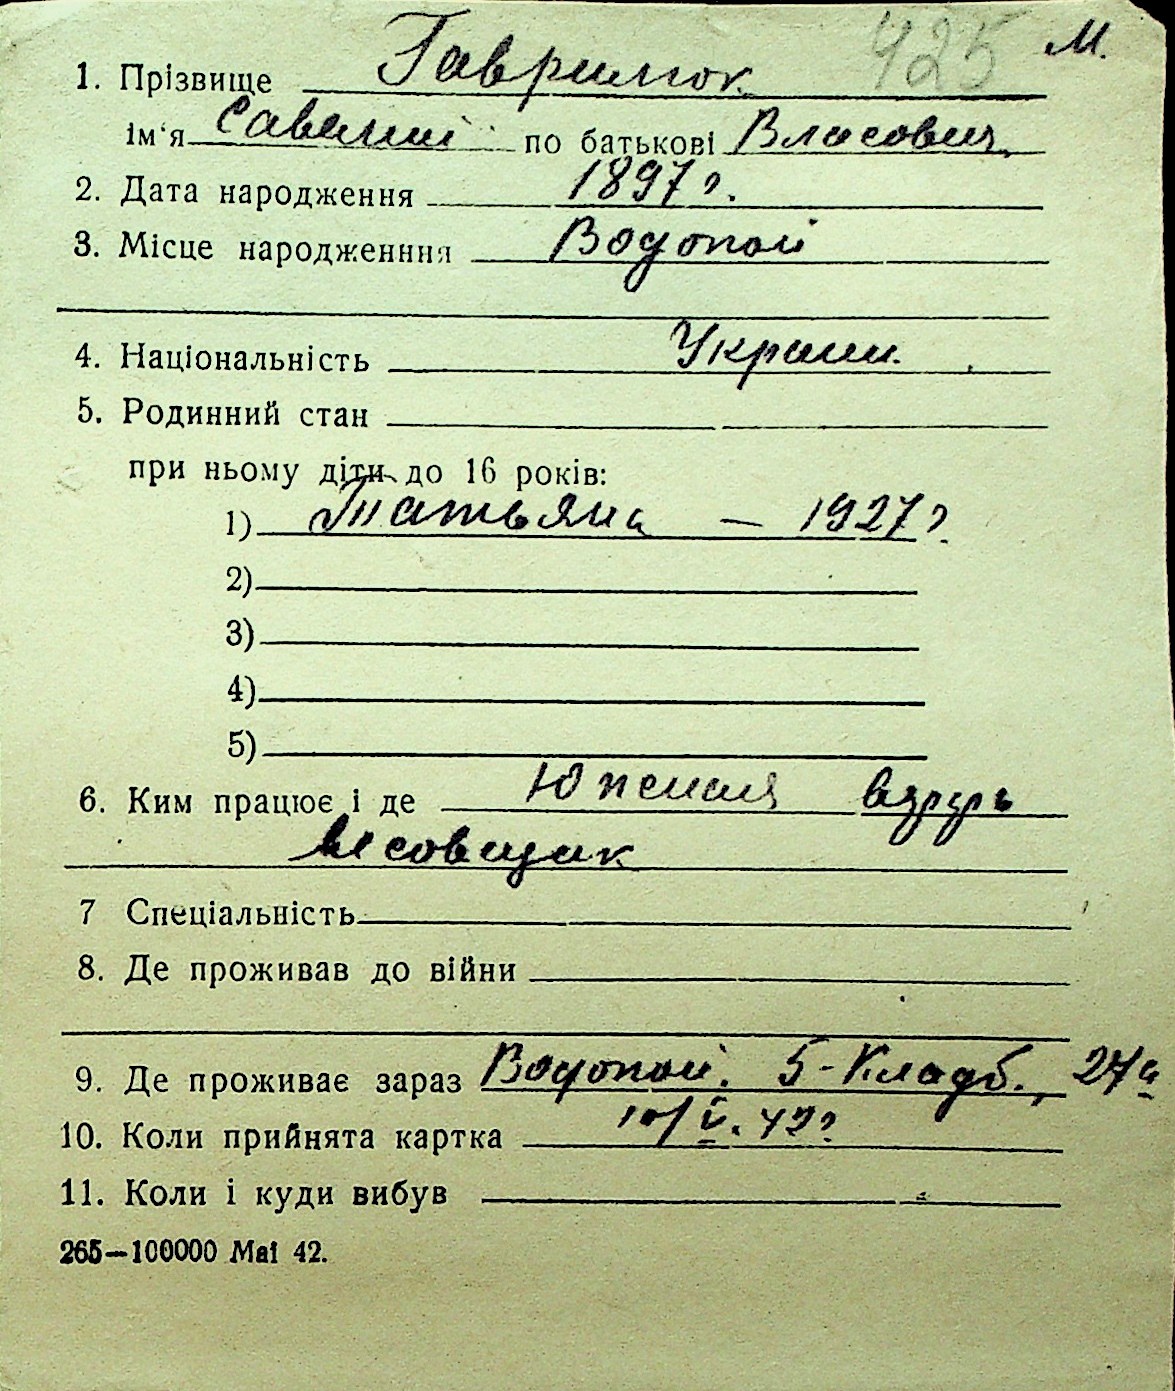 425 М.
1. Прізвище Гаврилюк
ім‘я Савелий по батькові Власович
2. Дата народження 1897 г.
3. Місце народженння Водопой
4. Національність Украин.
5. Родинний стан
при ньому діти до 16 років:
1) Татьяна — 1927 г.
2)
3)
4)
5)
6. Ким працює і де Южная
весовщик
7 Спеціальність
8. Де проживав до війни
9. Де проживає зараз Водопой. 5-Кладб., 27а
10. Коли прийнята картка 10/V. 42 г.
11. Коли і куди вибув
265—100000 Mai 42.